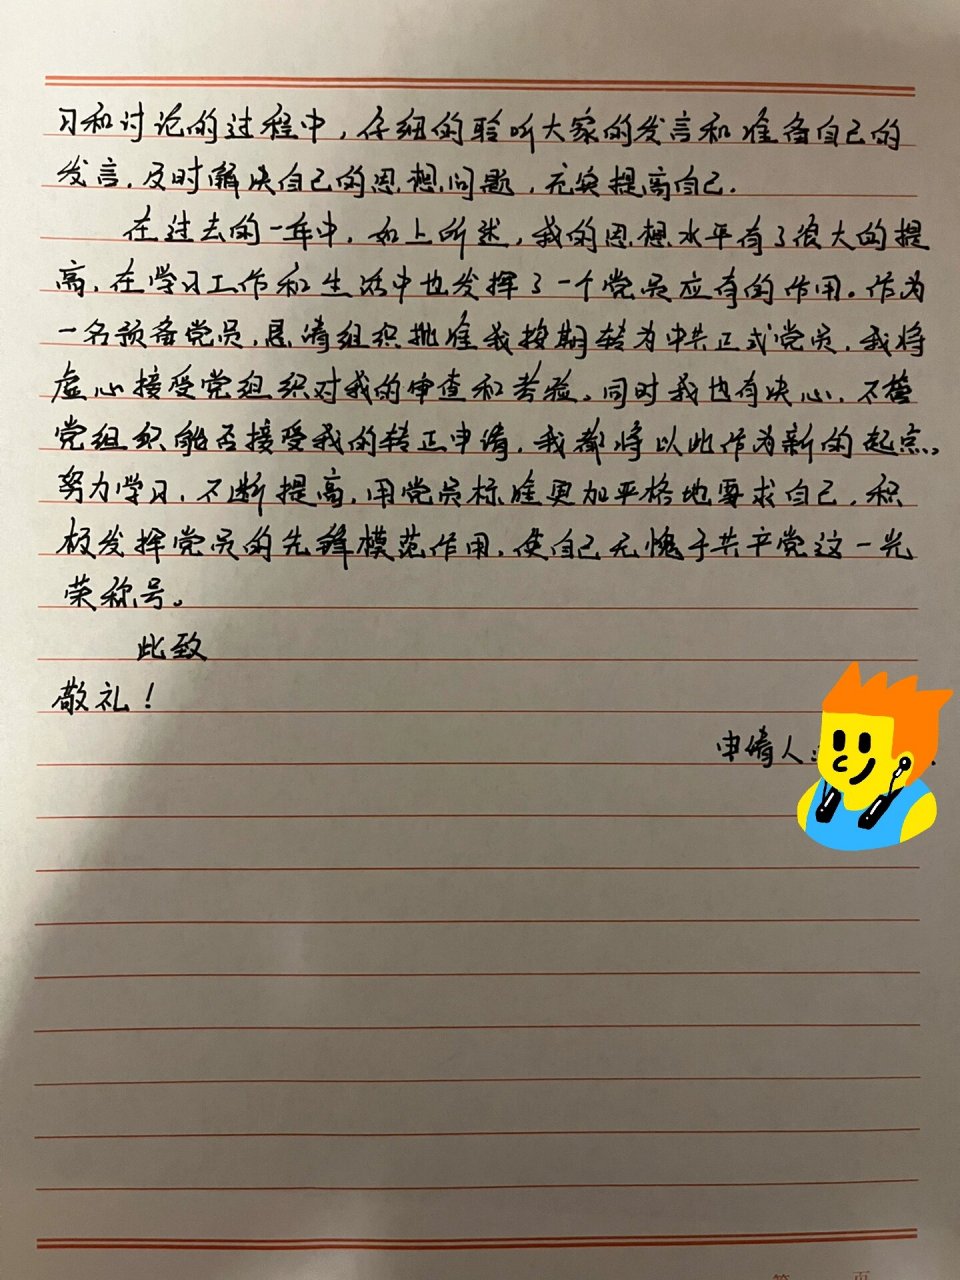 习和讨论的过程中，仔细的聆听大家的发言和准备自己的
发言，及时解决自己的思想问题，充实提高自己.
在过去的一年中，如上所述，我的思想水平有了很大的提
高，在学习工作和生活中也发挥了一个党员应有的作用。作为
一名预备党员，恳请组织批准我按期转为中共正式党员，我将
虚心接受党组织对我的审查和考验。同时我也有决心，不管
党组织能否接受我的转正申请，我都将以此作为新的起点。
努力学习，不断提高，用党员标准更加严格地要求自己，积
极发挥党员的先锋模范作用，使自己无愧于共产党这一光
荣称号。
此致
敬礼！
申请人：
第 页